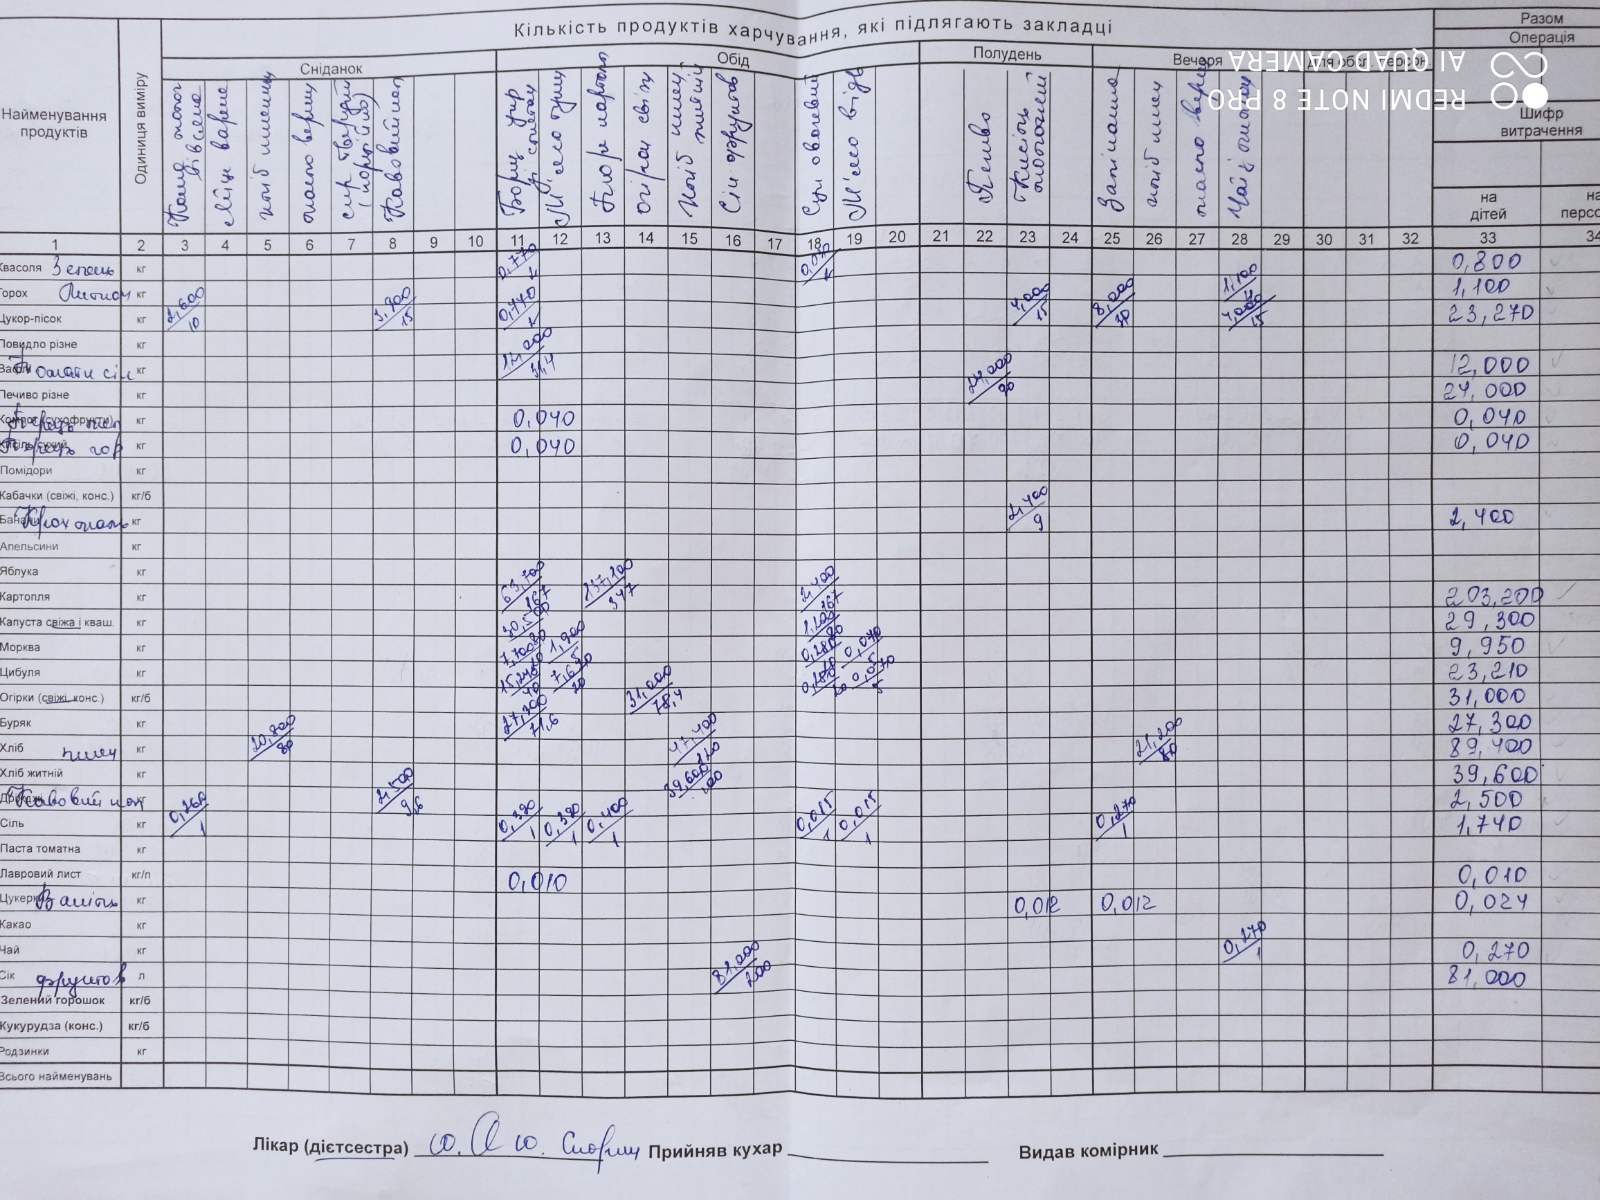 Кількість продуктів харчування, які підлягають закладці
Разом
Операція
Сніданок
Обід
Полудень
Вечеря
для обсл. персон.
AI QUAD CAMERA
REDMI NOTE 8 PRO
Найменування
продуктів
Одиниця виміру
Шифр
витрачення
на
дітей
на
персо
Яйце варене
хліб пшенич
масло верш
сир твердий
(порційно)
Кавовий нап
Борщ укр
зі сметан
М'ясо туш
Пюре картоп
огірки свіж
Хліб пшен
житній
Сік фруктов
Суп овочевий
М'ясо відв
Печиво
Кисіль
молочний
Запіканка
хліб пшен
масло верш
1 2 3 4 5 6 7 8 9 10 11 12 13 14 15 16 17 18 19 20 21 22 23 24 25 26 27 28 29 30 31 32 33 34
Квасоля Зелень кг 0,770 0,030 0,800
Горох кг 1,100 1,100
Цукор-пісок кг 2,600/10 3,900/15 0,770 4,000/15 8,000/30 4,000/15 23,270
Повидло різне кг
Томати сік кг 12,000/31,4 12,000
Печиво різне кг 24,000/90 24,000
Компот (сухофрукти) кг 0,040 0,040
Перець гор кг 0,040 0,040
Помідори кг
Кабачки (свіжі, конс.) кг/б
Банани Крохмаль кг 2,400/9 2,400
Апельсини кг
Яблука кг
Картопля кг 63,700/167 137,100/347 2,400/167 203,200
Капуста свіжа і кваш кг 1,100/80 29,300
Морква кг 7,700 1,900/5 0,280 0,070/5 9,950
Цибуля кг 7,620/20 0,070/5 23,210
Огірки (свіжі, конс.) кг/б 31,000/78,4 31,000
Буряк кг 27,300/71,6 27,300
Хліб пшен кг 20,800/80 47,400/120 21,200/80 89,400
Хліб житній кг 39,600/100 39,600
Кавовий нап кг 2,500/9,6 2,500
Сіль кг 0,260/1 0,390/1 0,390/1 0,400/1 0,015/1 0,015/1 0,270/1 1,740
Паста томатна кг
Лавровий лист кг/п 0,010 0,010
Цукерки Ваніль кг 0,012 0,012 0,024
Какао кг
Чай кг 0,270/1 0,270
Сік фруктов л 81,000/200 81,000
Зелений горошок кг/б
Кукурудза (конс.) кг/б
Родзинки кг
Всього найменувань
Лікар (дієтсестра) Прийняв кухар Видав комірник